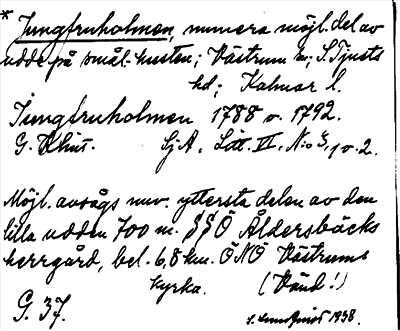 * Jungfruholmen, numera möjl. del av
udde på smål. kusten; Västrum sn; S. Tjusts
hd; Kalmar l.
Jungfruholmen 1788 o. 1792.
G. Klint. SjA, Litt. II, N:o 3, 1 o. 2.
Möjl. avsågs nuv. yttersta delen av den
lilla udden 700 m. SSÖ Åldersbäcks
herrgård, bel. 6,8 km. ÖNÖ Västrums
kyrka. (Vänd!)
G. 37. S. Lundqvist 1938.